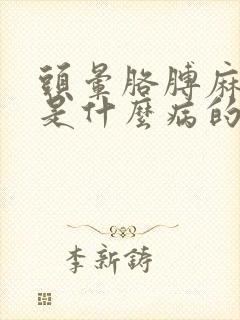 頭暈胳膊麻
是什麼病的
李新鑄